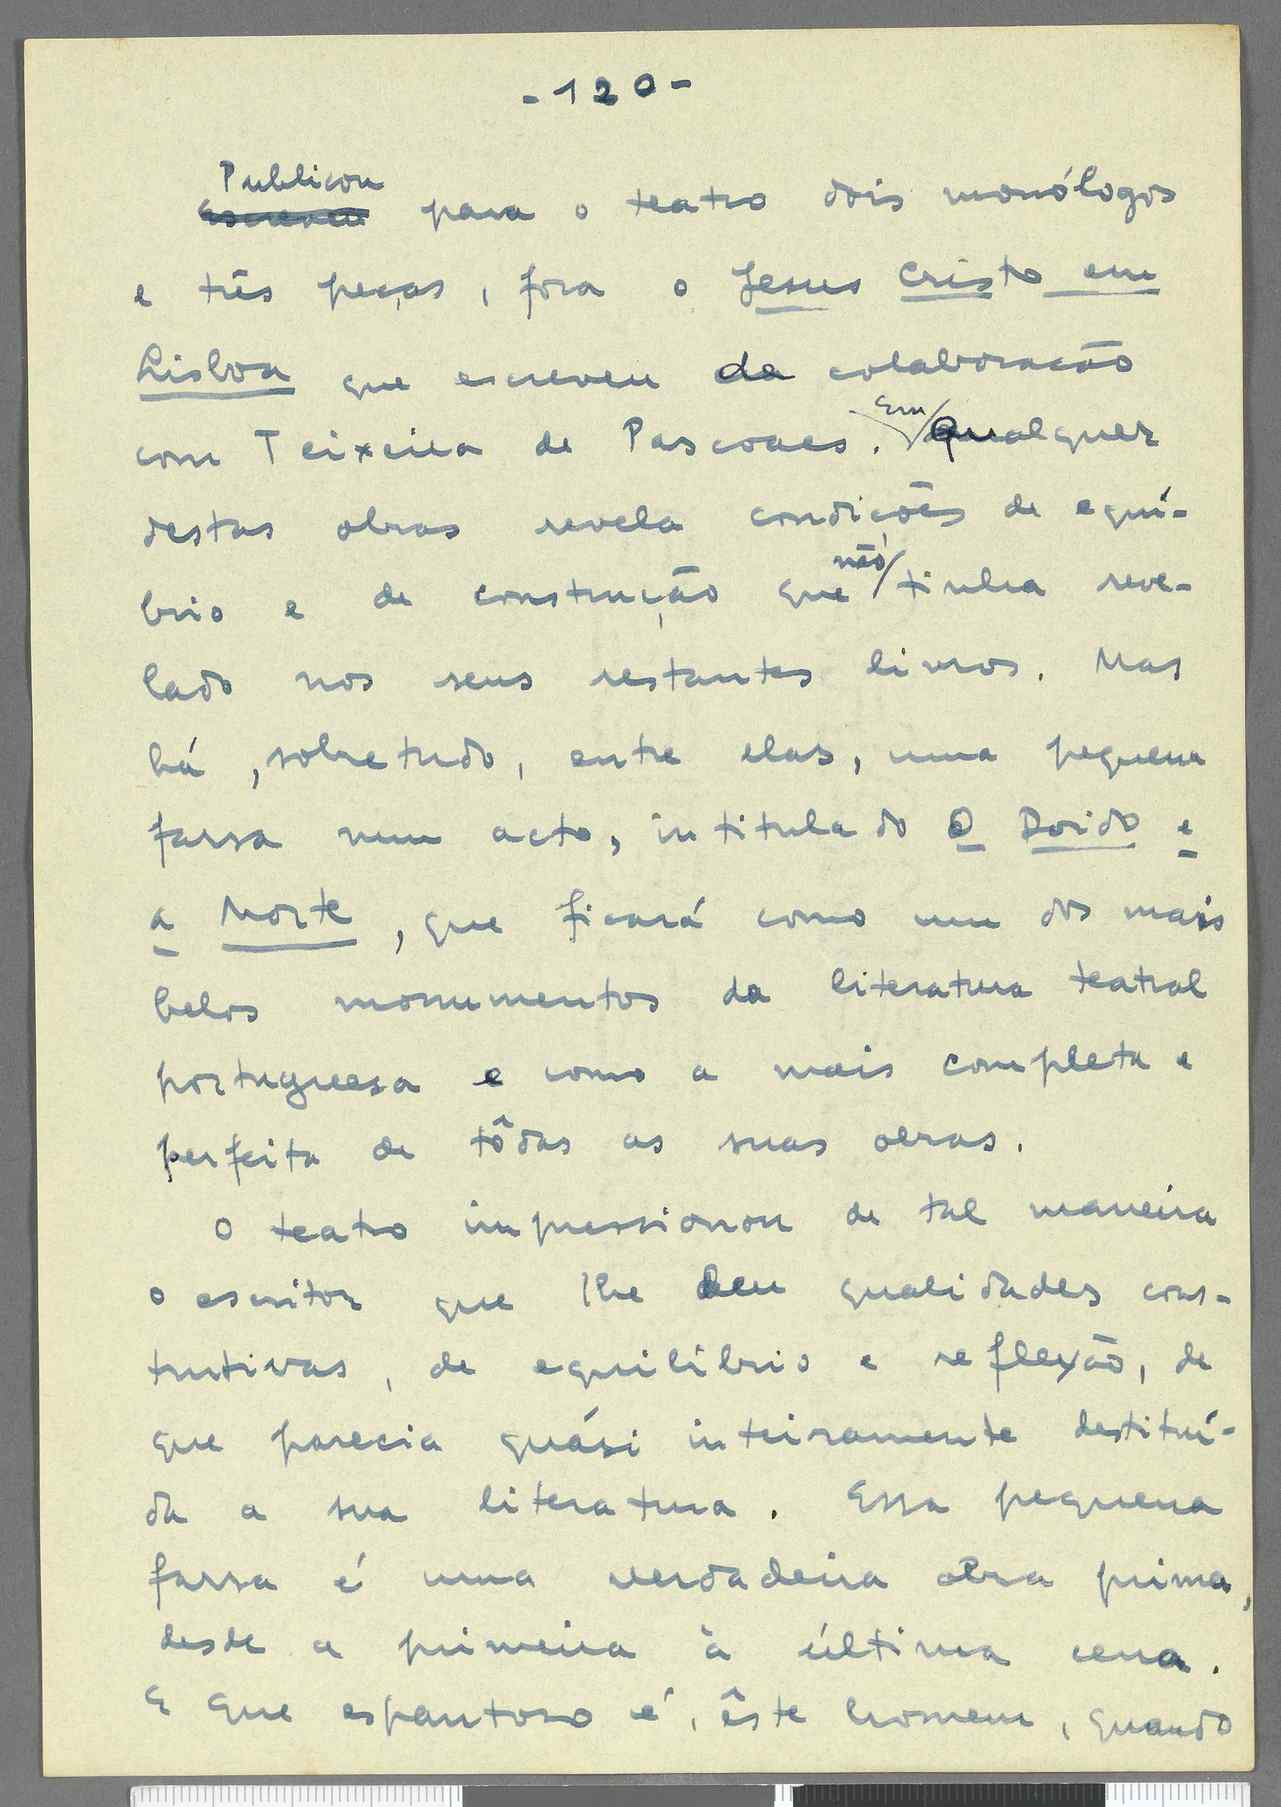 -120-
Publicou
Escreveu para o teatro dois monólogos
e três peças, fora o Jesus Cristo em
Lisboa que escreveu de colaboração
com Teixeira de Pascoaes. Em qualquer
destas obras revela condições de equí-
brio e de construção que não tinha reve-
lado nos seus restantes livros. Mas
há, sobretudo, entre elas, uma pequena
farsa num acto, intitulado O Doido e
a Morte, que ficará como um dos mais
belos monumentos da literatura teatral
portuguesa e como a mais completa e
perfeita de tôdas as suas obras.
O teatro impressionou de tal maneira
o escritor que lhe deu qualidades cons-
trutivas, de equilíbrio e reflexão, de
que parecia quási inteiramente destituí-
da a sua literatura. Essa pequena
farsa é uma verdadeira obra prima,
desde a primeira à última cena.
E que espantoso é, êste homem, quando